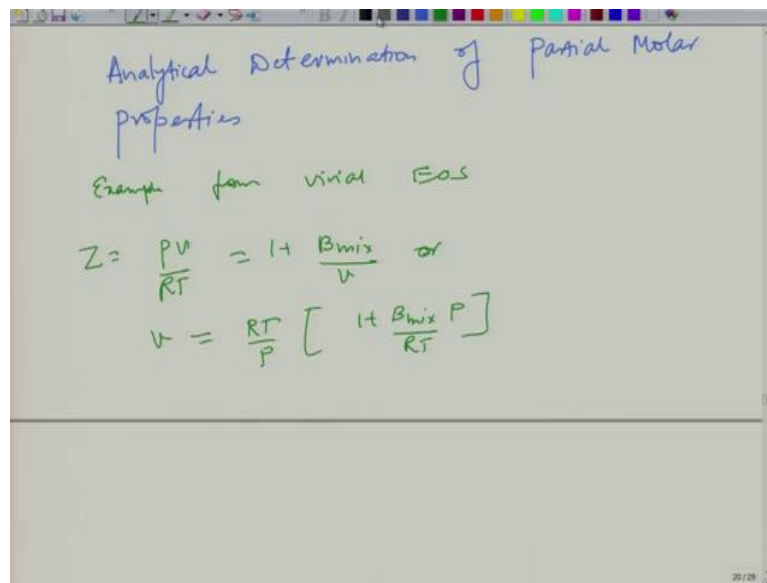 Analytical Determination of Partial Molar
properties
Example from virial EOS
Z = PV/RT = 1 + Bmix/v or
v = RT/P [ 1 + Bmix P/RT ]
20/29